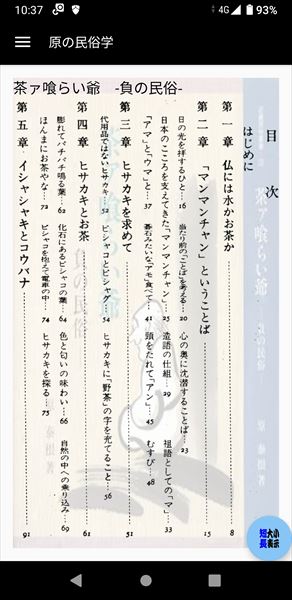 10:37
4G
93%
原の民俗学
茶ァ喰らい爺　-負の民俗-
目次
はじめに
第一章　仏には水かお茶か 8
第二章　「マンマンチャン」ということば 15
日の光を拝するひと 16　当たり前の「ことば」を考える 20　心の奥に沈潜することば 23
日本のこころを支えてきた「マンマンチャン」 25　造語の仕組 29　祖語としての「マ」
「アマ」と「ウマ」と 37　碁石みたいな「アモ」食べて 41　頭をたれて「アン」 45　むすび 48
第三章　ヒサカキを求めて 51
代用品ではないヒサカキ 52　ビシャコとビシャグ 54　ヒサカキに「野茶」の字を充てること 56
第四章　ヒサカキとお茶 61
膨れてパチパチ鳴る葉 62　化石にあるビシャコの葉 64　色と匂いの味わい 66　自然の中への乗り込み 69
ほんまにお茶やな 73　ビシャコを抱えて電車の中 74　ヒサカキを探る 75
第五章　イシャシャキとコウバナ 91
茶ァ喰らい爺
負の民俗
原 泰根 著
大小
短長
表示